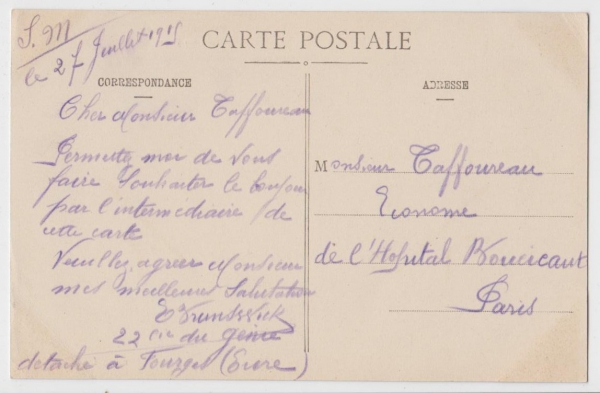 S. M
le 27 Juillet 1915
CARTE POSTALE
CORRESPONDANCE
ADRESSE
Cher Monsieur Taffoureau
Permettez moi de vous
faire Souhaiter le bonjour
par l'intermédiaire de
cette carte
Veuillez agreer Monsieur
mes meilleures Salutations
Brunswick
22 cie du génie
détaché à (Eure)
Monsieur Taffoureau
Econome
de l'Hopital Boucicaut
Paris